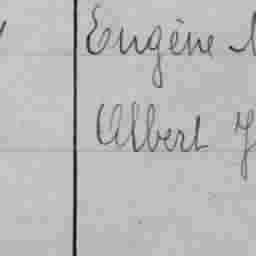 Eugène
Albert